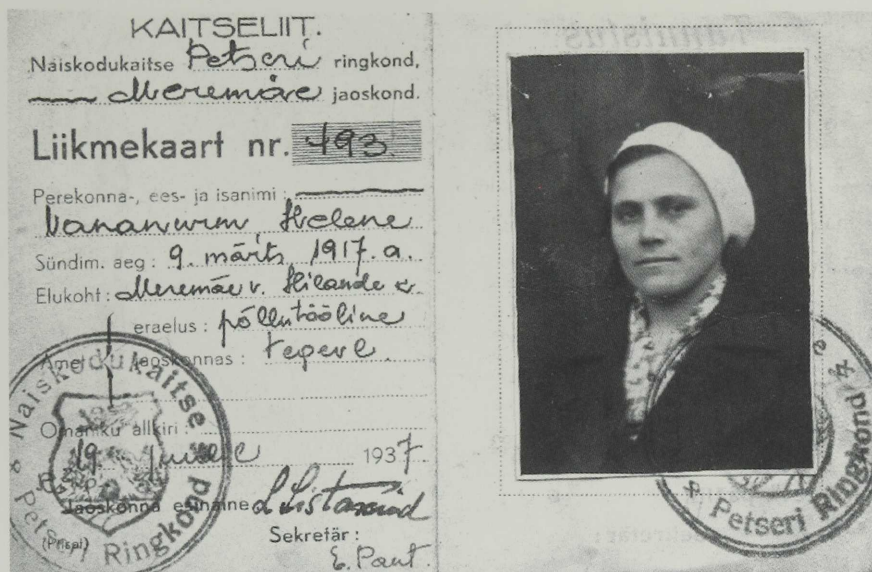 KAITSELIIT.
Naiskodukaitse Petseri ringkond,
Meremäe jaoskond.
Liikmekaart nr. 493
Perekonna-, ees- ja isanimi:
Vananurm, Helene
Sündim. aeg: 9. märts 1917. a.
Elukoht: Meremäe v. Hilande k.
eraelus: põllutööline
Amet jaoskonnas: tegevl.
Omaniku allkiri:
19. 1937
Jaoskonna esinaine
(Pitsat) Sekretär:
E. Paut.
Naiskodukaitse
Petseri Ringkond
Petseri Ringkond
Tunnistus